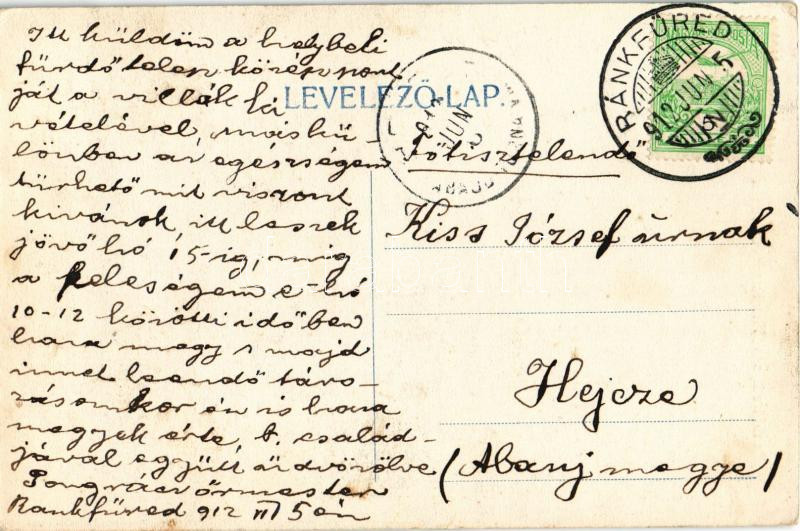 Itt küldöm a helybeli
fürdőtelep középpont
ját a villák ki
vételével, máskü-
lönben az egészségem
türhető mit viszont
kivánok, itt leszek
jövő hó 15-ig, mig
a feleségem e-hó
10-12 közötti időben
haza megy s majd
innét leendő távo-
zásomkor én is haza
megyek érte, b. család-
jával együtt üdvözölve
Pongrácz őrmester
Rankfüred 912 VI 5 én
LEVELEZŐ-LAP.
RÁNKFÜRED
912 JUN 5
JUN
Főtisztelendő
Kiss József úrnak
Hejcze
(Abauj megye)